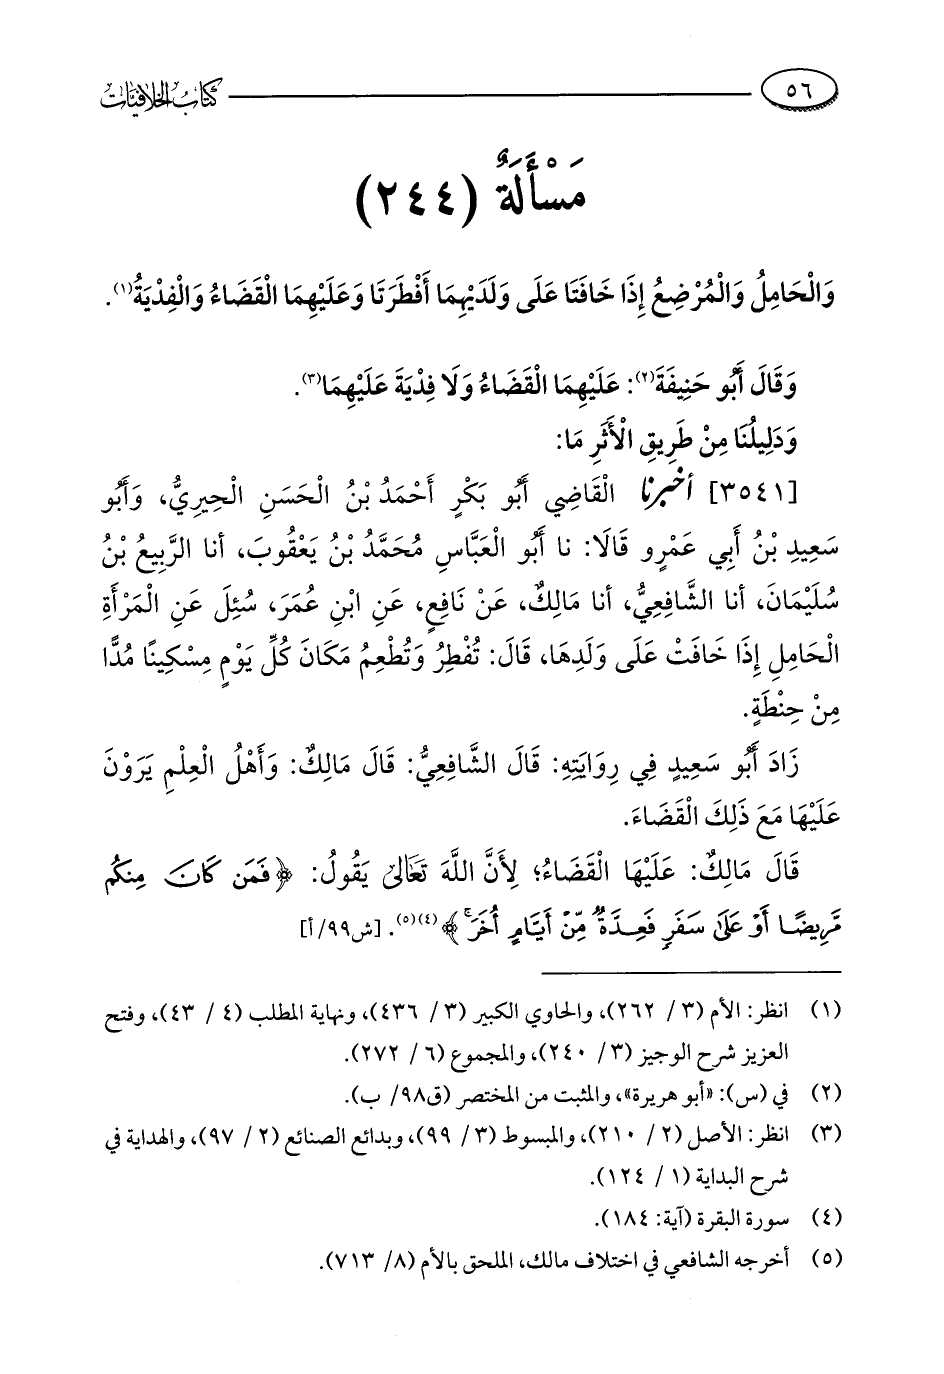 ٥٦ كتاب الخلافيات
مَسْأَلَةٌ (٢٤٤)
وَالْحَامِلُ وَالْمُرْضِعُ إِذَا خَافَتَا عَلَى وَلَدَيْهِمَا أَفْطَرَتَا وَعَلَيْهِمَا الْقَضَاءُ وَالْفِدْيَةُ(١).
وَقَالَ أَبُو حَنِيفَةَ(٢): عَلَيْهِمَا الْقَضَاءُ وَلَا فِدْيَةَ عَلَيْهِمَا(٣).
وَدَلِيلُنَا مِنْ طَرِيقِ الْأَثَرِ مَا:
[٣٥٤١] أخبرنا الْقَاضِي أَبُو بَكْرٍ أَحْمَدُ بْنُ الْحَسَنِ الْحِيرِيُّ، وَأَبُو
سَعِيدِ بْنُ أَبِي عَمْرٍو قَالَا: نا أَبُو الْعَبَّاسِ مُحَمَّدُ بْنُ يَعْقُوبَ، أنا الرَّبِيعُ بْنُ
سُلَيْمَانَ، أنا الشَّافِعِيُّ، أنا مَالِكٌ، عَنْ نَافِعٍ، عَنِ ابْنِ عُمَرَ، سُئِلَ عَنِ الْمَرْأَةِ
الْحَامِلِ إِذَا خَافَتْ عَلَى وَلَدِهَا، قَالَ: تُفْطِرُ وَتُطْعِمُ مَكَانَ كُلِّ يَوْمٍ مِسْكِينًا مُدًّا
مِنْ حِنْطَةٍ.
زَادَ أَبُو سَعِيدٍ فِي رِوَايَتِهِ: قَالَ الشَّافِعِيُّ: قَالَ مَالِكٌ: وَأَهْلُ الْعِلْمِ يَرَوْنَ
عَلَيْهَا مَعَ ذَلِكَ الْقَضَاءَ.
قَالَ مَالِكٌ: عَلَيْهَا الْقَضَاءُ؛ لِأَنَّ اللَّهَ تَعَالَى يَقُولُ: ﴿فَمَن كَانَ مِنكُم
مَّرِيضًا أَوْ عَلَىٰ سَفَرٍ فَعِدَّةٌ مِّنْ أَيَّامٍ أُخَرَ ۚ﴾(٤)(٥). [ش٩٩/أ]
(١) انظر: الأم (٣/ ٢٦٢)، والحاوي الكبير (٣/ ٤٣٦)، ونهاية المطلب (٤/ ٤٣)، وفتح
العزيز شرح الوجيز (٣/ ٢٤٠)، والمجموع (٦/ ٢٧٢).
(٢) في (س): «أبو هريرة»، والمثبت من المختصر (ق٩٨/ ب).
(٣) انظر: الأصل (٢/ ٢١٠)، والمبسوط (٣/ ٩٩)، وبدائع الصنائع (٢/ ٩٧)، والهداية في
شرح البداية (١/ ١٢٤).
(٤) سورة البقرة (آية: ١٨٤).
(٥) أخرجه الشافعي في اختلاف مالك، الملحق بالأم (٨/ ٧١٣).